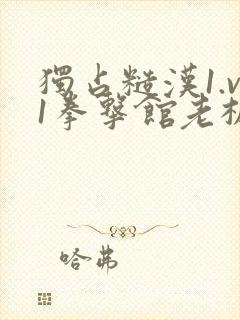 獨占糙漢1.v
1拳擊館老板
哈弗